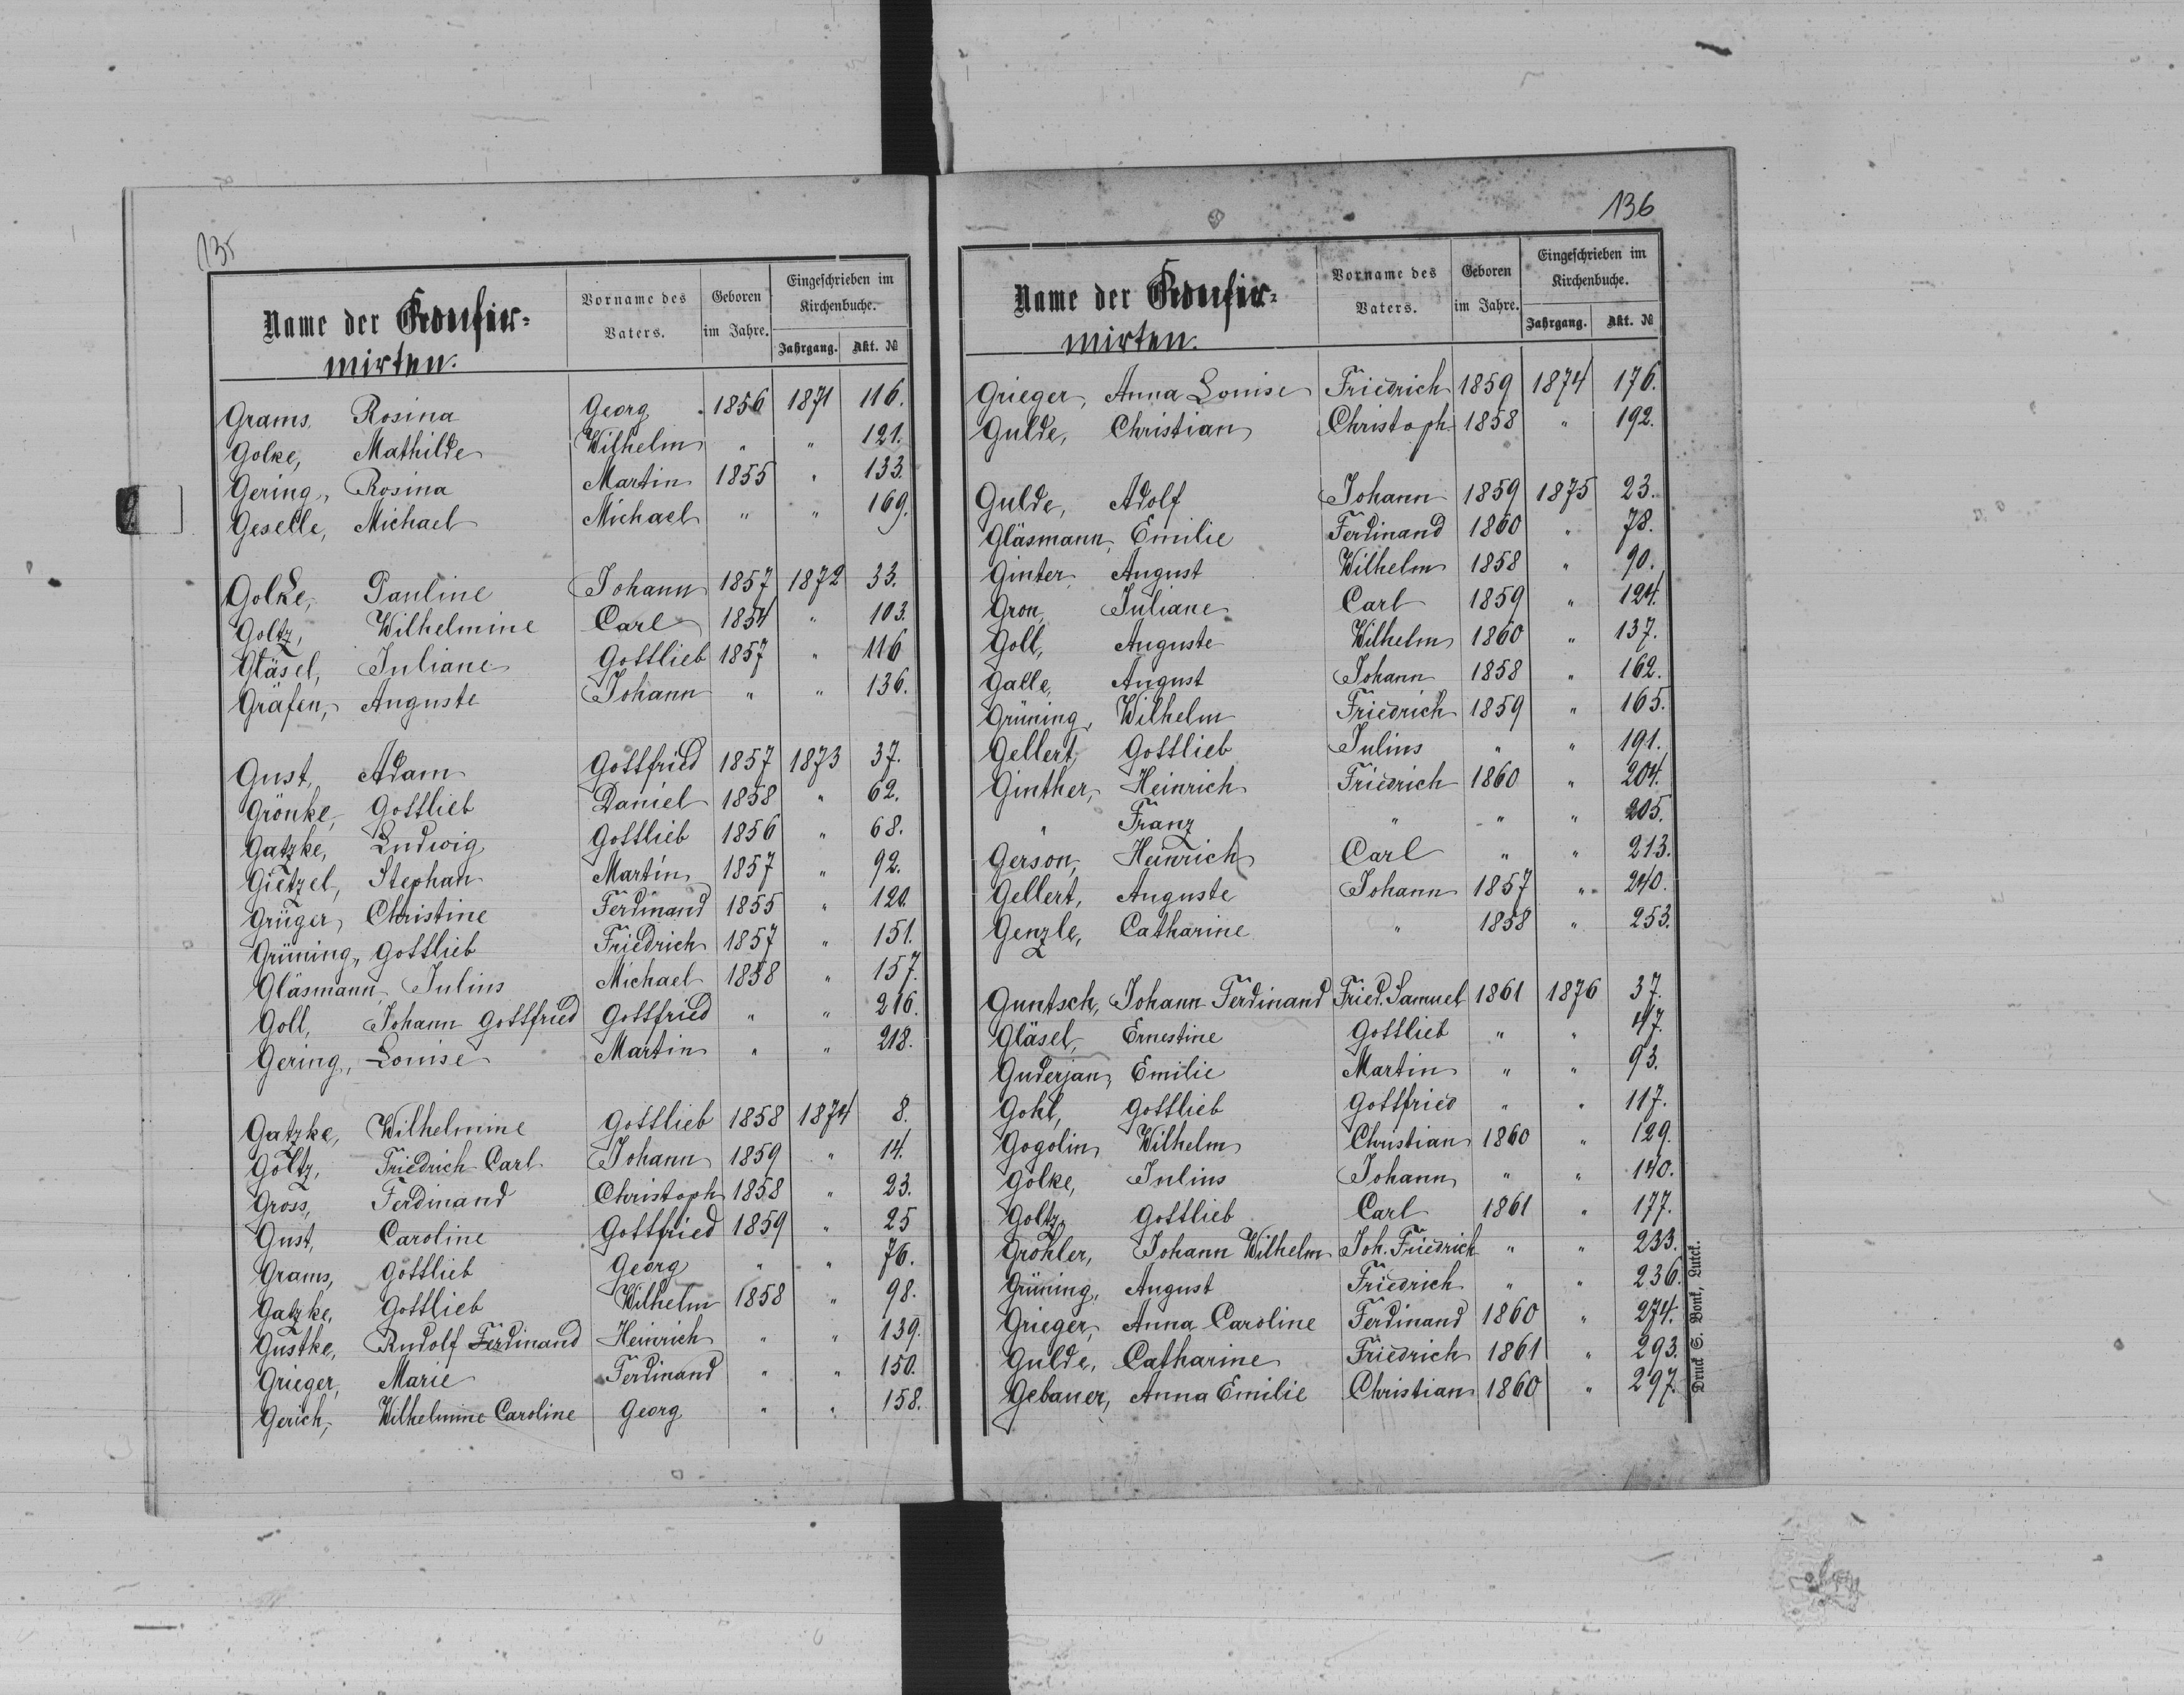 135
Name der Konfir-
mirten.
Vorname des Vaters.
Geboren im Jahre.
Eingeschrieben im Kirchenbuche.
Jahrgang. Akt. №
Grams, Rosina Georg 1856 1871 116.
Golke, Mathilde Wilhelm " " 121.
Gering, Rosina Martin 1855 " 133.
Geselle, Michael Michael " " 169.
Golke, Pauline Johann 1857 1872 33.
Goltz, Wilhelmine Carl 1854 " 103.
Gläsel, Juliane Gottlieb 1857 " 116
Gräfen, Auguste Johann " " 136.
Gust, Adam Gottfried 1857 1873 37.
Grönke, Gottlieb Daniel 1858 " 62.
Gatzke, Ludwig Gottlieb 1856 " 68.
Gietzel, Stephan Martin 1857 " 92.
Grüger, Christine Ferdinand 1855 " 120.
Grüning, Gottlieb Friedrich 1857 " 151.
Gläsmann, Julius Michael 1858 " 157.
Goll, Johann Gottfried Gottfried " " 216.
Gering, Louise Martin " " 218.
Gatzke, Wilhelmine Gottlieb 1858 1874 8.
Goltz, Friedrich Carl Johann 1859 " 14.
Gross, Ferdinand Christoph 1858 " 23.
Gust, Caroline Gottfried 1859 " 25
Grams, Gottlieb Georg " " 76.
Gatzke, Gottlieb Wilhelm 1858 " 98.
Gustke, Rudolf Ferdinand Heinrich " " 139.
Grieger, Marie Ferdinand " " 150.
Gerich, Wilhelmine Caroline Georg " " 158.
136
Name der Konfir-
mirten.
Vorname des Vaters.
Geboren im Jahre.
Eingeschrieben im Kirchenbuche.
Jahrgang. Akt. №
Grieger, Anna Louise Friedrich 1859 1874 176.
Gulde, Christian Christoph 1858 " 192.
Gulde, Adolf Johann 1859 1875 23.
Gläsmann, Emilie Ferdinand 1860 " 78.
Ginter August Wilhelm 1858 " 90.
Gron, Juliane Carl 1859 " 124.
Goll, Auguste Wilhelm 1860 " 137.
Galle, August Johann 1858 " 162.
Grüning, Wilhelm Friedrich 1859 " 165.
Gellert, Gottlieb Julius " " 191.
Ginther, Heinrich Friedrich 1860 " 204.
" Franz " " " 205.
Gerson, Heinrich Carl " " 213.
Gellert, Auguste Johann 1857 " 240.
Genzle, Catharine " 1858 " 253.
Guntsch, Johann Ferdinand Fried. Samuel 1861 1876 37.
Gläsel, Ernestine Gottlieb " " 47.
Guderjan, Emilie Martin " " 93.
Gohl, Gottlieb Gottfried " " 117.
Gogolin, Wilhelm Christian 1860 " 129.
Golke, Julius Johann " " 140.
Goltz, Gottlieb Carl 1861 " 177.
Grohler, Johann Wilhelm Joh. Friedrich " " 233.
Grüning, August Friedrich " " 236.
Grieger, Anna Caroline Ferdinand 1860 " 274.
Gulde, Catharine Friedrich 1861 " 293.
Gebauer, Anna Emilie Christian 1860 " 297.
Druck S. Bonk, Luck.